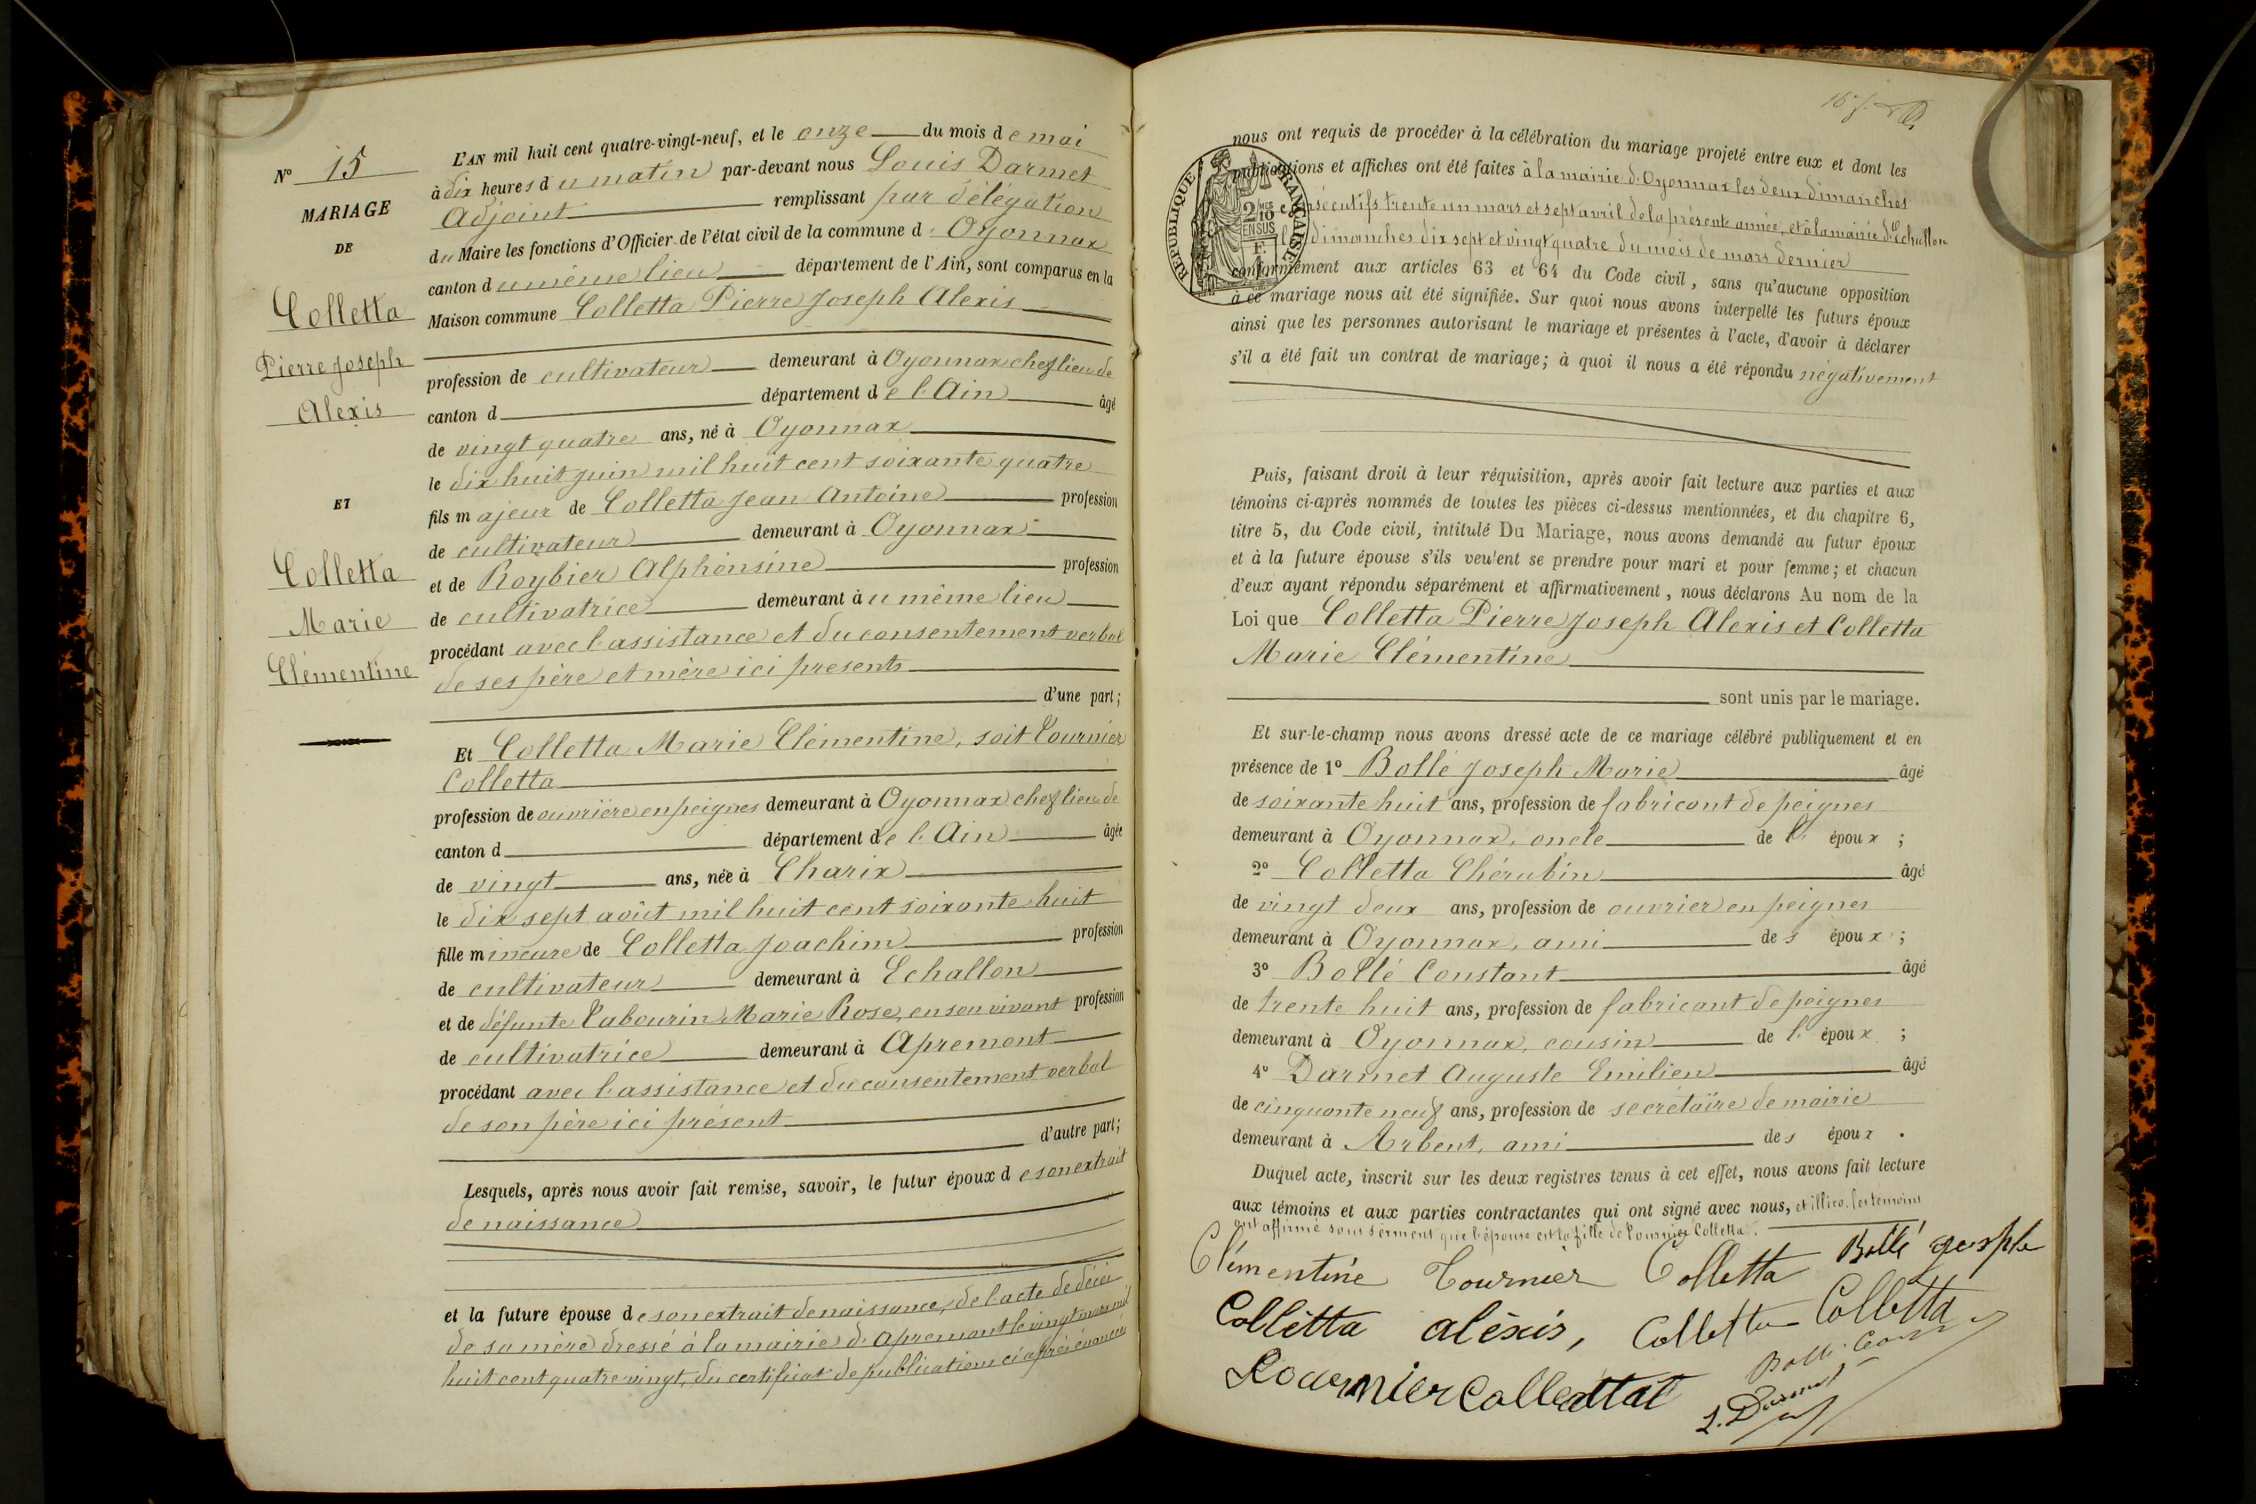 Nº 15
MARIAGE
DE
Colletta
Pierre Joseph
Alexis
ET
Colletta
Marie
Clémentine
L'AN mil huit cent quatre-vingt-neuf, et le onze du mois de mai
à dix heures du matin par-devant nous Louis Darmet
Adjoint remplissant par délégation
du Maire les fonctions d'Officier de l'état civil de la commune d'Oyonnax
canton du même lieu département de l'Ain, sont comparus en la
Maison commune Colletta Pierre Joseph Alexis
profession de cultivateur demeurant à Oyonnax chef lieu de
canton d département de l'Ain âgé
de vingt quatre ans, né à Oyonnax
le dix huit juin mil huit cent soixante quatre
fils majeur de Colletta Jean Antoine profession
de cultivateur demeurant à Oyonnax
et de Roybier Alphonsine profession
de cultivatrice demeurant au même lieu
procédant avec l'assistance et du consentement verbal
de ses père et mère ici présents
d'une part;
Et Colletta Marie Clémentine, soit Tournier
Colletta
profession de ouvrière en peignes demeurant à Oyonnax chef lieu de
canton d département de l'Ain âgée
de vingt ans, née à Charix
le dix sept août mil huit cent soixante huit
fille mineure de Colletta Joachim profession
de cultivateur demeurant à Echallon
et de défunte Tabourin Marie Rose, en son vivant profession
de cultivatrice demeurant à Apremont
procédant avec l'assistance et du consentement verbal
de son père ici présent
d'autre part;
Lesquels, après nous avoir fait remise, savoir, le futur époux de son extrait
de naissance
et la future épouse de son extrait de naissance, de l'acte de décès
de sa mère dressé à la mairie d'Apremont le vingt mars mil
huit cent quatre vingt, du certificat de publications ci après énoncées
nous ont requis de procéder à la célébration du mariage projeté entre eux et dont les
publications et affiches ont été faites à la mairie d'Oyonnax les deux dimanches
consécutifs trente un mars et sept avril de la présente année, et à la mairie d'Echallon
les dimanches dix sept et vingt quatre du mois de mars dernier
RÉPUBLIQUE FRANÇAISE
2 MES
10
EN SUS
conformément aux articles 63 et 64 du Code civil, sans qu'aucune opposition
à ce mariage nous ait été signifiée. Sur quoi nous avons interpellé les futurs époux
ainsi que les personnes autorisant le mariage et présentes à l'acte, d'avoir à déclarer
s'il a été fait un contrat de mariage; à quoi il nous a été répondu négativement
Puis, faisant droit à leur réquisition, après avoir fait lecture aux parties et aux
témoins ci-après nommés de toutes les pièces ci-dessus mentionnées, et du chapitre 6,
titre 5, du Code civil, intitulé Du Mariage, nous avons demandé au futur époux
et à la future épouse s'ils veulent se prendre pour mari et pour femme; et chacun
d'eux ayant répondu séparément et affirmativement, nous déclarons Au nom de la
Loi que Colletta Pierre Joseph Alexis et Colletta
Marie Clémentine
sont unis par le mariage.
Et sur-le-champ nous avons dressé acte de ce mariage célébré publiquement et en
présence de 1º Bollé Joseph Marie âgé
de soixante huit ans, profession de fabricant de peignes
demeurant à Oyonnax, oncle de l'époux ;
2º Colletta Chérubin âgé
de vingt deux ans, profession de ouvrier en peignes
demeurant à Oyonnax, ami des époux ;
3º Bollé Constant âgé
de trente huit ans, profession de fabricant de peignes
demeurant à Oyonnax, cousin de l'époux ;
4º Darmet Auguste Emilien âgé
de cinquante neuf ans, profession de secrétaire de mairie
demeurant à Arbent, ami des époux .
Duquel acte, inscrit sur les deux registres tenus à cet effet, nous avons fait lecture
aux témoins et aux parties contractantes qui ont signé avec nous, et illico. les témoins
ont affirmé sous serment que l'épouse est la fille de Tournier Colletta.
Clémentine Tournier Colletta Bollé Joseph
Collétta aléxis, Colletta Colletta
Bollé
Tournier Collettat
L. Darmet